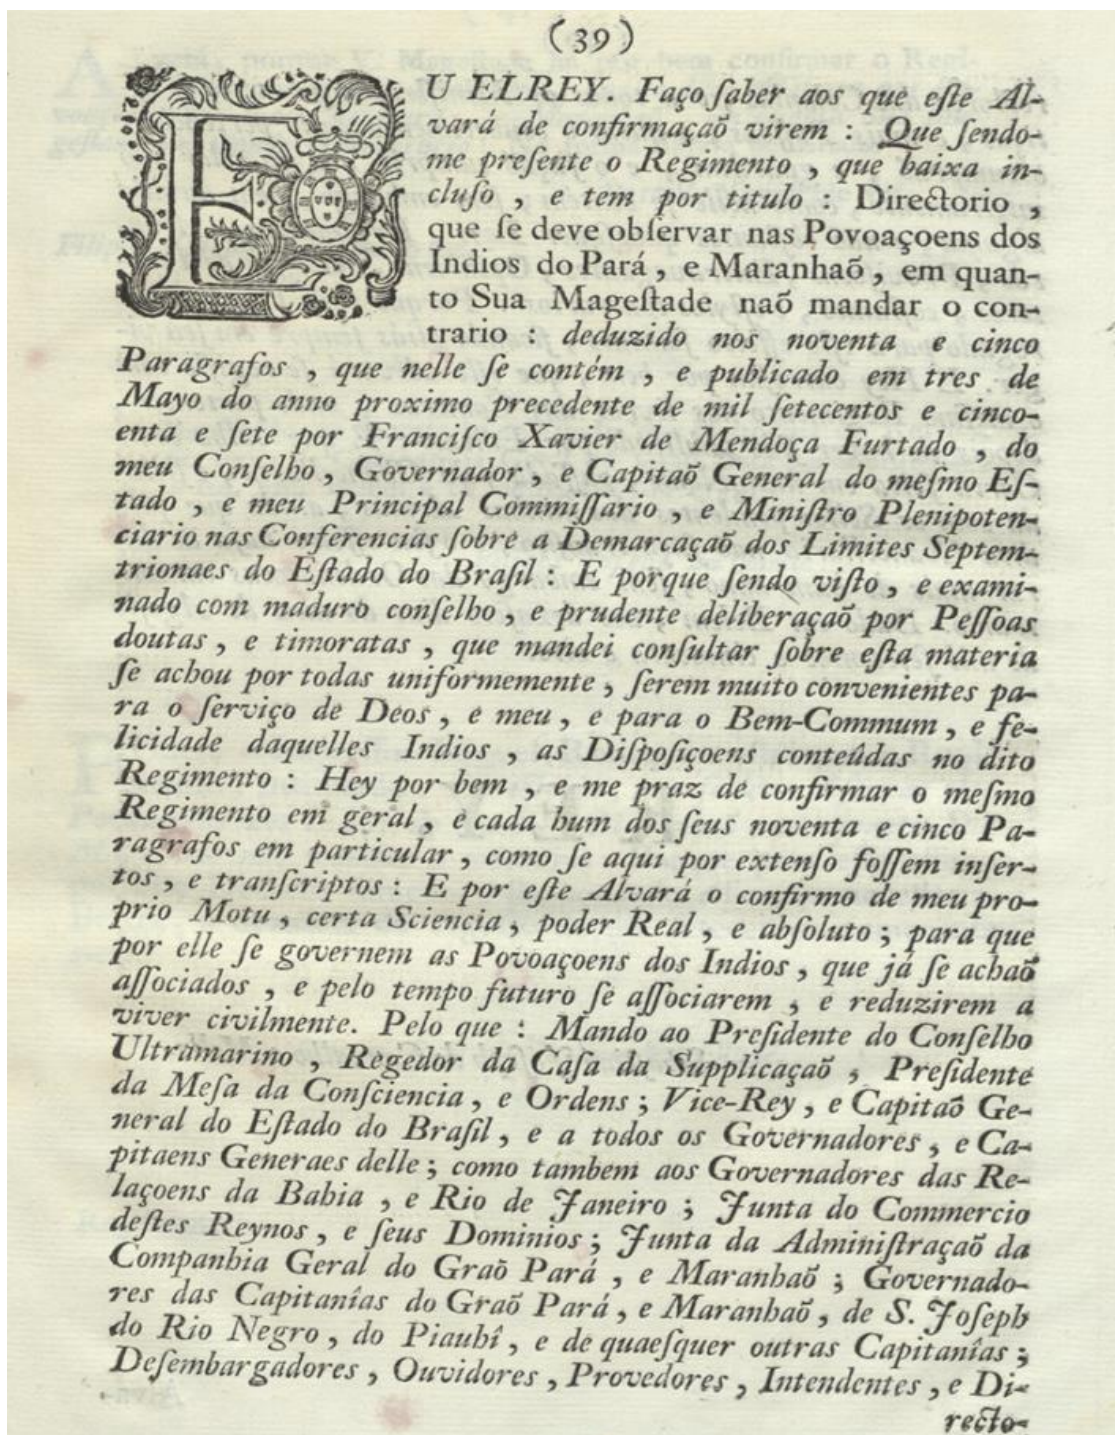 (39)
EU ELREY. Faço ſaber aos que eſte Al-
vará de confirmaçaõ virem : Que ſendo-
me preſente o Regimento , que baixa in-
cluſo , e tem por titulo : Directorio ,
que ſe deve obſervar nas Povoaçoens dos
Indios do Pará , e Maranhaõ , em quan-
to Sua Mageſtade naõ mandar o con-
trario : deduzido nos noventa e cinco
Paragrafos , que nelle ſe contém , e publicado em tres de
Mayo do anno proximo precedente de mil ſetecentos e cinco-
enta e ſete por Franciſco Xavier de Mendoça Furtado , do
meu Conſelho , Governador , e Capitaõ General do meſmo Eſ-
tado , e meu Principal Commiſſario , e Miniſtro Plenipoten-
ciario nas Conferencias ſobre a Demarcaçaõ dos Limites Septem-
trionaes do Eſtado do Braſil : E porque ſendo viſto , e exami-
nado com maduro conſelho , e prudente deliberaçaõ por Peſſoas
doutas , e timoratas , que mandei conſultar ſobre eſta materia
ſe achou por todas uniformemente , ſerem muito convenientes pa-
ra o ſerviço de Deos , e meu , e para o Bem-Commum , e fe-
licidade daquelles Indios , as Diſpoſiçoens conteûdas no dito
Regimento : Hey por bem , e me praz de confirmar o meſmo
Regimento em geral , e cada hum dos ſeus noventa e cinco Pa-
ragrafos em particular , como ſe aqui por extenſo foſſem inſer-
tos , e tranſcriptos : E por eſte Alvará o confirmo de meu pro-
prio Motu , certa Sciencia , poder Real , e abſoluto ; para que
por elle ſe governem as Povoaçoens dos Indios , que já ſe achaõ
aſſociados , e pelo tempo futuro ſe aſſociarem , e reduzirem a
viver civilmente. Pelo que : Mando ao Preſidente do Conſelho
Ultramarino , Regedor da Caſa da Supplicaçaõ , Preſidente
da Meſa da Conſciencia , e Ordens ; Vice-Rey , e Capitaõ Ge-
neral do Eſtado do Braſil , e a todos os Governadores , e Ca-
pitaens Generaes delle ; como tambem aos Governadores das Re-
laçoens da Bahia , e Rio de Janeiro ; Junta do Commercio
deſtes Reynos , e ſeus Dominios ; Junta da Adminiſtraçaõ da
Companhia Geral do Graõ Pará , e Maranhaõ ; Governado-
res das Capitanîas do Graõ Pará , e Maranhaõ , de S. Joſeph
do Rio Negro , do Piauhî , e de quaeſquer outras Capitanîas ;
Deſembargadores , Ouvidores , Provedores , Intendentes , e Di-
recto-